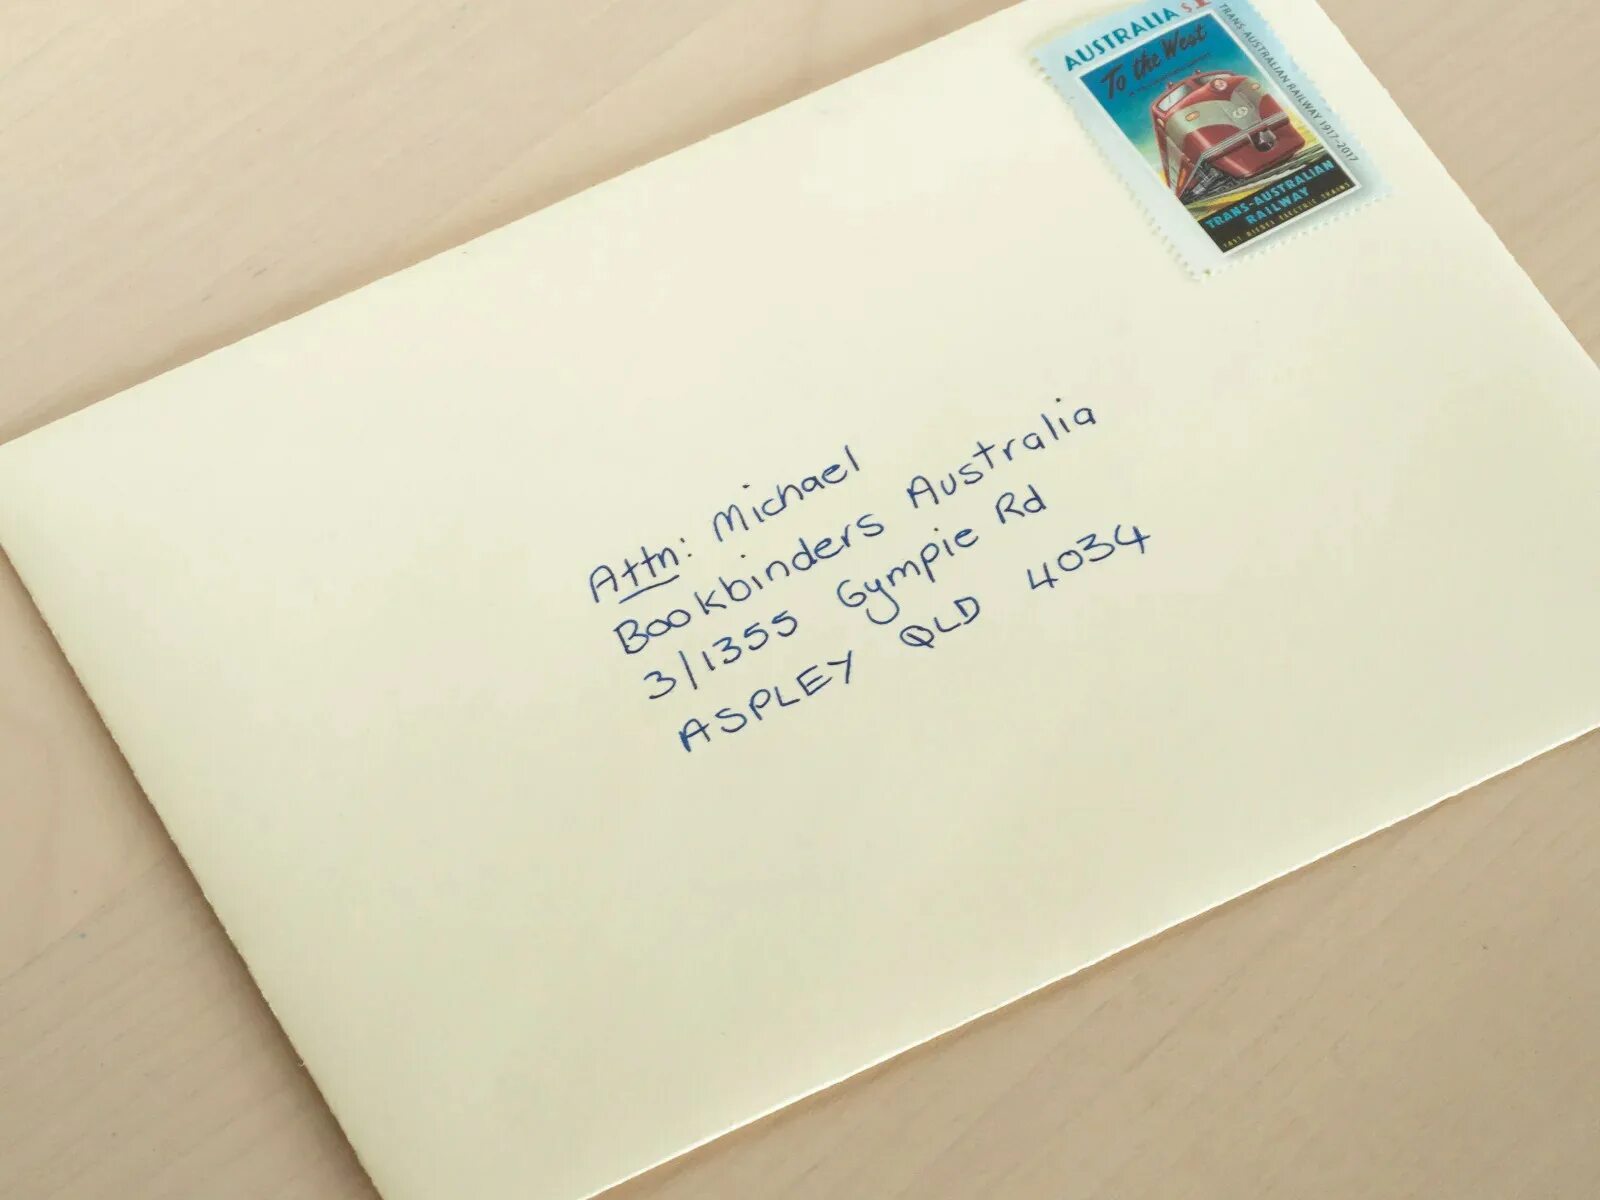 AUSTRALIA $1
To the West
TRANS-AUSTRALIAN RAILWAY 1917-2017
TRANS-AUSTRALIAN
RAILWAY
FAST DIESEL ELECTRIC TRAINS
Attn: Michael
Bookbinders Australia
3/1355 Gympie Rd
ASPLEY QLD 4034